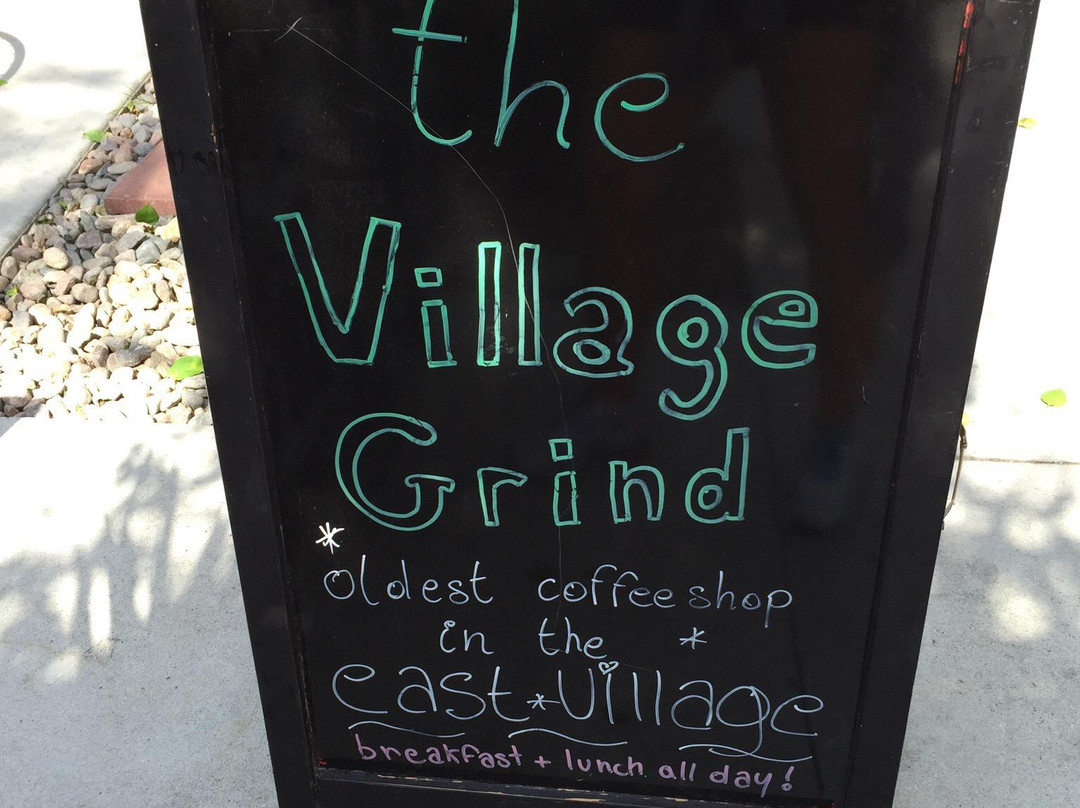 the
Village
Grind
*oldest coffee shop
in the *
east*village
breakfast + lunch all day!